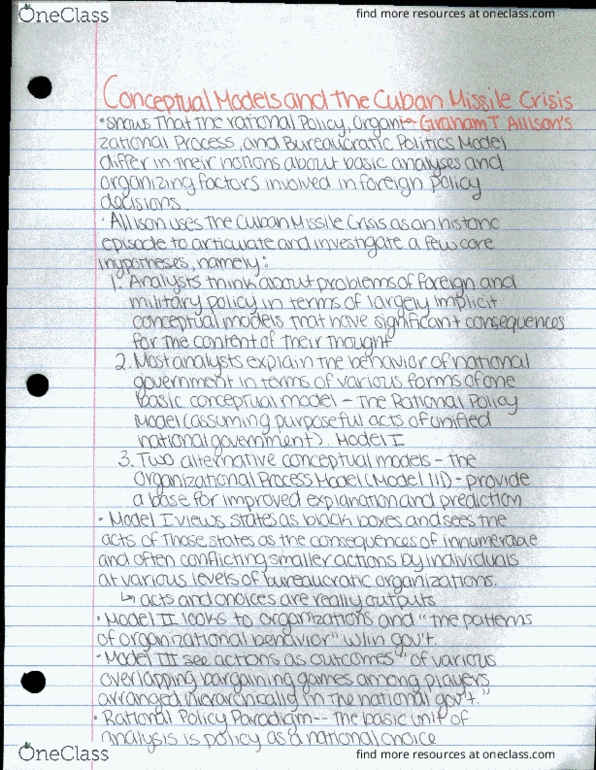 OneClass
find more resources at oneclass.com
Conceptual Models and the Cuban Missile Crisis
• shows that the rational Policy, Organi- Graham T Allison's
zational Process, and Bureaucratic Politics Model
differ in their notions about basic analyses and
organizing factors involved in foreign policy
decisions
• Allison uses the Cuban Missile Crisis as an historic
episode to articulate and investigate a few core
hypotheses, namely:
1. Analysts think about problems of foreign and
military policy in terms of largely implicit
conceptual models that have significant consequences
for the content of their thought
2. Most analysts explain the behavior of national
government in terms of various forms of one
basic conceptual model - the Rational Policy
Model (assuming purposeful acts of unified
national government). Model I
3. Two alternative conceptual models - the
Organizational Process Model (Model III) - provide
a base for improved explanation and prediction
• Model I views states as black boxes and sees the
acts of those states as the consequences of innumerable
and often conflicting smaller actions by individuals
at various levels of bureaucratic organizations.
↳ acts and choices are really outputs
• Model II looks to organizations and "the patterns
of organizational behavior" w/in gov't.
• Model III see actions as outcomes "of various
overlapping bargaining games among players
arranged hierarchically in the national gov't."
• Rational Policy Paradigm -- the basic unit of
analysis is policy as a national choice
OneClass
find more resources at oneclass.com